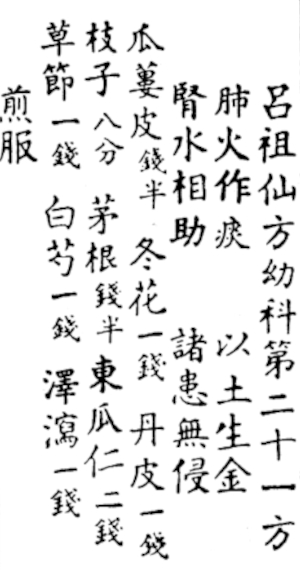 呂祖仙方幼科第二十一方
肺火作痰　以土生金
腎水相助　諸患無侵
瓜蔞皮錢半　冬花一錢　丹皮一錢
枝子八分　茅根錢半　東瓜仁二錢
草節一錢　白芍一錢　澤瀉一錢
煎服